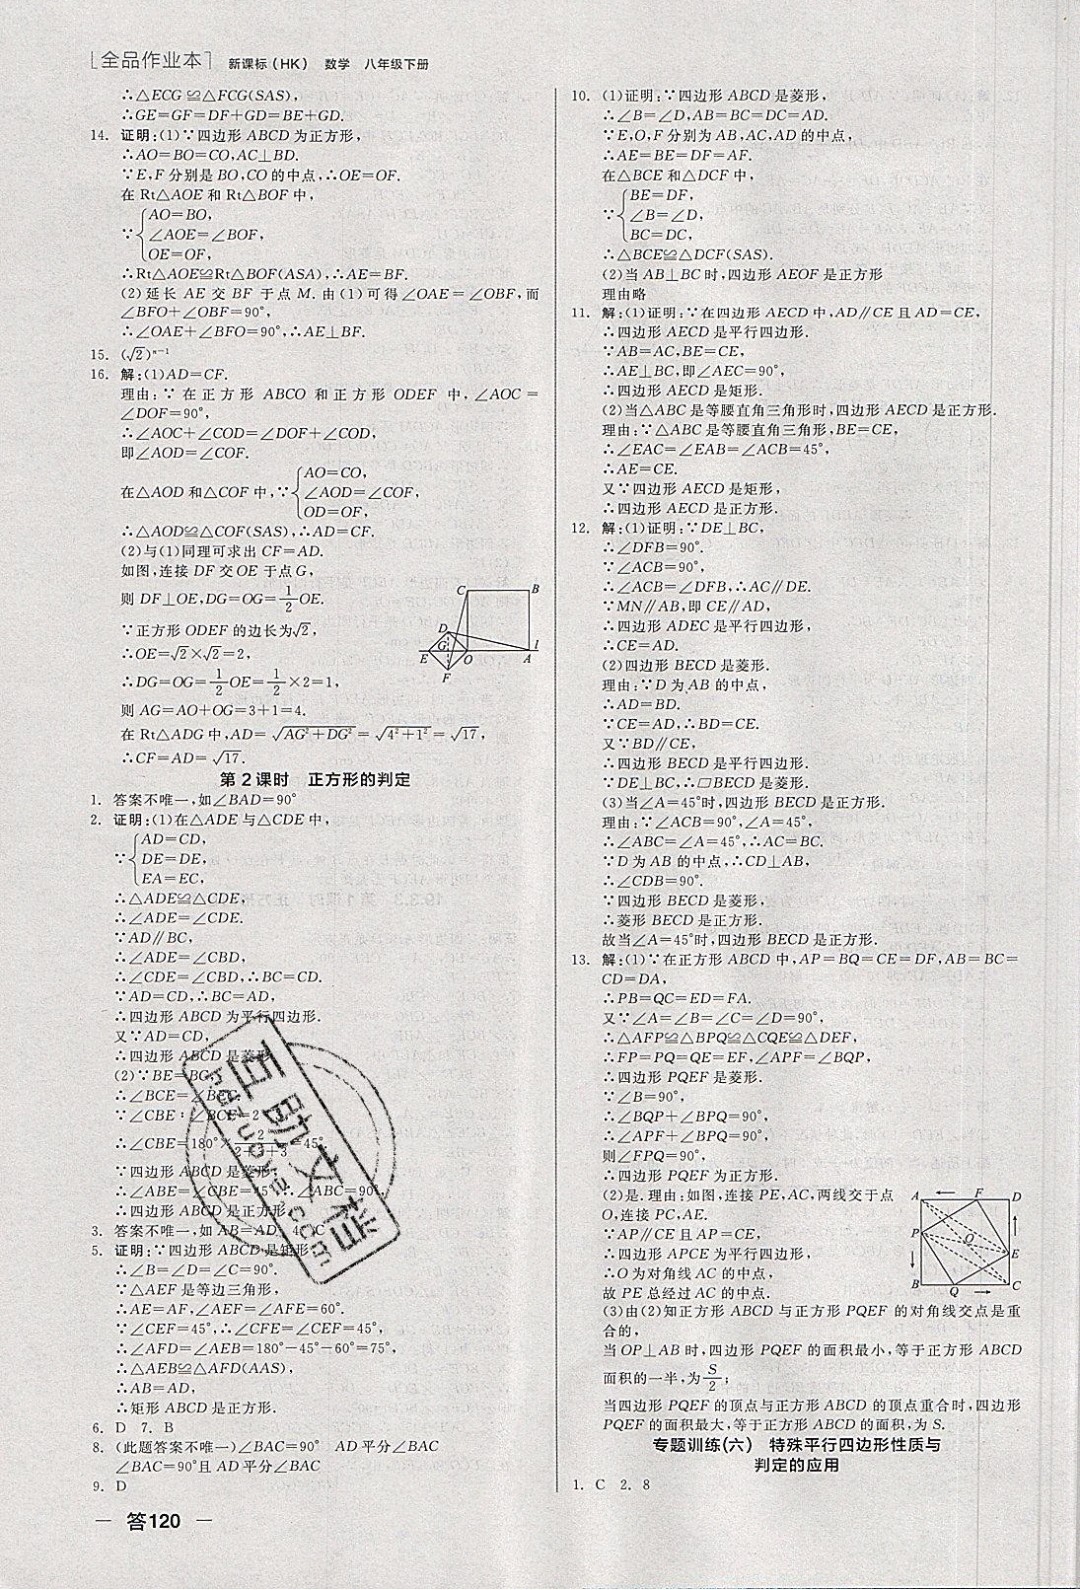 [全品作业本] 新课标(HK) 数学 八年级下册
∴△ECG≌△FCG(SAS),
∴GE=GF=DF+GD=BE+GD.
14. 证明:(1)∵四边形 ABCD 为正方形,
∴AO=BO=CO,AC⊥BD.
∵E,F 分别是 BO,CO 的中点,∴OE=OF.
在 Rt△AOE 和 Rt△BOF 中,
AO=BO,
∵{∠AOE=∠BOF,
OE=OF,
∴Rt△AOE≌Rt△BOF(ASA),∴AE=BF.
(2)延长 AE 交 BF 于点 M.由(1)可得∠OAE=∠OBF,而
∠BFO+∠OBF=90°,
∴∠OAE+∠BFO=90°,∴AE⊥BF.
15. (√2)ⁿ⁻¹
16. 解:(1)AD=CF.
理由:∵在正方形 ABCO 和正方形 ODEF 中,∠AOC=
∠DOF=90°,
∴∠AOC+∠COD=∠DOF+∠COD,
即∠AOD=∠COF.
AO=CO,
在△AOD 和△COF 中,∵{∠AOD=∠COF,
OD=OF,
∴△AOD≌△COF(SAS),∴AD=CF.
(2)与(1)同理可求出 CF=AD.
如图,连接 DF 交 OE 于点 G,
则 DF⊥OE,DG=OG=1/2 OE.
∵正方形 ODEF 的边长为√2,
∴OE=√2×√2=2,
∴DG=OG=1/2 OE=1/2×2=1,
则 AG=AO+OG=3+1=4.
在 Rt△ADG 中,AD=√(AG²+DG²)=√(4²+1²)=√17,
∴CF=AD=√17.
C B D G E O A l F
第 2 课时 正方形的判定
1. 答案不唯一,如∠BAD=90°
2. 证明:(1)在△ADE 与△CDE 中,
AD=CD,
∵{DE=DE,
EA=EC,
∴△ADE≌△CDE,
∴∠ADE=∠CDE.
∵AD∥BC,
∴∠ADE=∠CBD,
∴∠CDE=∠CBD,∴BC=CD.
∵AD=CD,∴BC=AD,
∴四边形 ABCD 为平行四边形.
又∵AD=CD,
∴四边形 ABCD 是菱形.
(2)∵BE=BC,
∴∠BCE=∠BEC.
∵∠CBE∶∠BCE=2
∴∠CBE=180°×2/2+3+3=45°.
∵四边形 ABCD 是菱形,
∴∠ABE=∠CBE=45°,∴∠ABC=90°,
∴四边形 ABCD 是正方形.
3. 答案不唯一,如 AB=AD 4. C
5. 证明:∵四边形 ABCD 是矩形,
∴∠B=∠D=∠C=90°.
∵△AEF 是等边三角形,
∴AE=AF,∠AEF=∠AFE=60°.
∵∠CEF=45°,∴∠CFE=∠CEF=45°,
∴∠AFD=∠AEB=180°-45°-60°=75°,
∴△AEB≌△AFD(AAS),
∴AB=AD,
∴矩形 ABCD 是正方形.
6. D 7. B
8. (此题答案不唯一)∠BAC=90° AD 平分∠BAC
∠BAC=90°且 AD 平分∠BAC
9. D
10. (1)证明:∵四边形 ABCD 是菱形,
∴∠B=∠D,AB=BC=DC=AD.
∵E,O,F 分别为 AB,AC,AD 的中点,
∴AE=BE=DF=AF.
在△BCE 和△DCF 中,
BE=DF,
∵{∠B=∠D,
BC=DC,
∴△BCE≌△DCF(SAS).
(2)当 AB⊥BC 时,四边形 AEOF 是正方形
理由略
11. 解:(1)证明:∵在四边形 AECD 中,AD∥CE 且 AD=CE,
∴四边形 AECD 是平行四边形.
∵AB=AC,BE=CE,
∴AE⊥BC,即∠AEC=90°,
∴四边形 AECD 是矩形.
(2)当△ABC 是等腰直角三角形时,四边形 AECD 是正方形.
理由:∵△ABC 是等腰直角三角形,BE=CE,
∴∠EAC=∠EAB=∠ACB=45°,
∴AE=CE.
又∵四边形 AECD 是矩形,
∴四边形 AECD 是正方形.
12. 解:(1)证明:∵DE⊥BC,
∴∠DFB=90°.
∵∠ACB=90°,
∴∠ACB=∠DFB,∴AC∥DE.
∵MN∥AB,即 CE∥AD,
∴四边形 ADEC 是平行四边形,
∴CE=AD.
(2)四边形 BECD 是菱形.
理由:∵D 为 AB 的中点,
∴AD=BD.
∵CE=AD,∴BD=CE.
又∵BD∥CE,
∴四边形 BECD 是平行四边形.
∵DE⊥BC,∴□BECD 是菱形.
(3)当∠A=45°时,四边形 BECD 是正方形.
理由:∵∠ACB=90°,∠A=45°,
∴∠ABC=∠A=45°,∴AC=BC.
∵D 为 AB 的中点,∴CD⊥AB,
∴∠CDB=90°.
∵四边形 BECD 是菱形,
∴菱形 BECD 是正方形.
故当∠A=45°时,四边形 BECD 是正方形.
13. 解:(1)∵在正方形 ABCD 中,AP=BQ=CE=DF,AB=BC=
CD=DA,
∴PB=QC=ED=FA.
又∵∠A=∠B=∠C=∠D=90°,
∴△AFP≌△BPQ≌△CQE≌△DEF,
∴FP=PQ=QE=EF,∠APF=∠BQP,
∴四边形 PQEF 是菱形.
∵∠B=90°,
∴∠BQP+∠BPQ=90°,
∴∠APF+∠BPQ=90°,
则∠FPQ=90°,
∴四边形 PQEF 为正方形.
(2)是.理由:如图,连接 PE,AC,两线交于点
O,连接 PC,AE.
∵AP∥CE 且 AP=CE,
∴四边形 APCE 为平行四边形,
∴O 为对角线 AC 的中点,
故 PE 总经过 AC 的中点.
A F D P O E B Q C
(3)由(2)知正方形 ABCD 与正方形 PQEF 的对角线交点是重
合的,
当 OP⊥AB 时,四边形 PQEF 的面积最小,等于正方形 ABCD
面积的一半,为S/2;
当四边形 PQEF 的顶点与正方形 ABCD 的顶点重合时,四边形
PQEF 的面积最大,等于正方形 ABCD 的面积,为 S.
专题训练(六) 特殊平行四边形性质与
判定的应用
1. C 2. 8
— 答120 —
互助文档